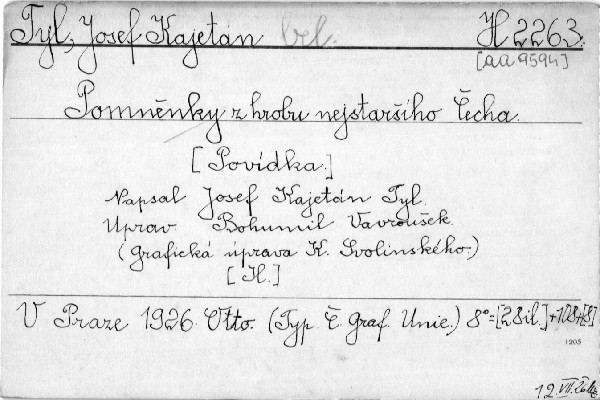 Tyl, Josef Kajetán H 2263.
[AA 9594]
Pomněnky z hrobu nejstaršího Čecha.
[Povídka.]
Napsal Josef Kajetán Tyl.
Uprav. Bohumil Vavroušek.
(Grafická úprava K. Svolinského.)
[Il.]
V Praze 1926. Otto. (Typ. Č. Graf. Unie.) 8°=[2 8il.]+108+[8]
1205
12. VII. 26